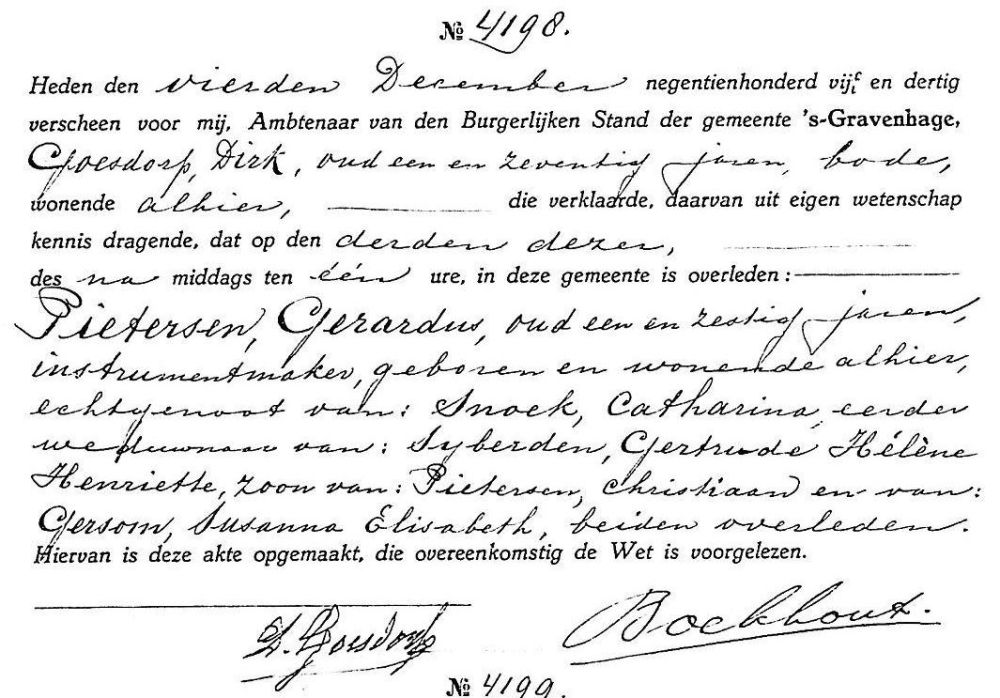 № 4198.
Heden den vierden December negentienhonderd vijf en dertig
verscheen voor mij, Ambtenaar van den Burgerlijken Stand der gemeente 's-Gravenhage,
Goesdorp, Dirk, oud een en zeventig jaren, bode,
wonende alhier, die verklaarde, daarvan uit eigen wetenschap
kennis dragende, dat op den derden dezer,
des na middags ten één ure, in deze gemeente is overleden:
Pietersen, Gerardus, oud een en zestig jaren,
instrumentmaker, geboren en wonende alhier,
echtgenoot van: Snoek, Catharina, eerder
weduwnaar van: Syberden, Gertrude Hélène
Henriette, zoon van: Pietersen, Christiaan en van:
Gersom, Susanna Elisabeth, beiden overleden.
Hiervan is deze akte opgemaakt, die overeenkomstig de Wet is voorgelezen.
D. Goesdorp Boekhout.
№ 4199.